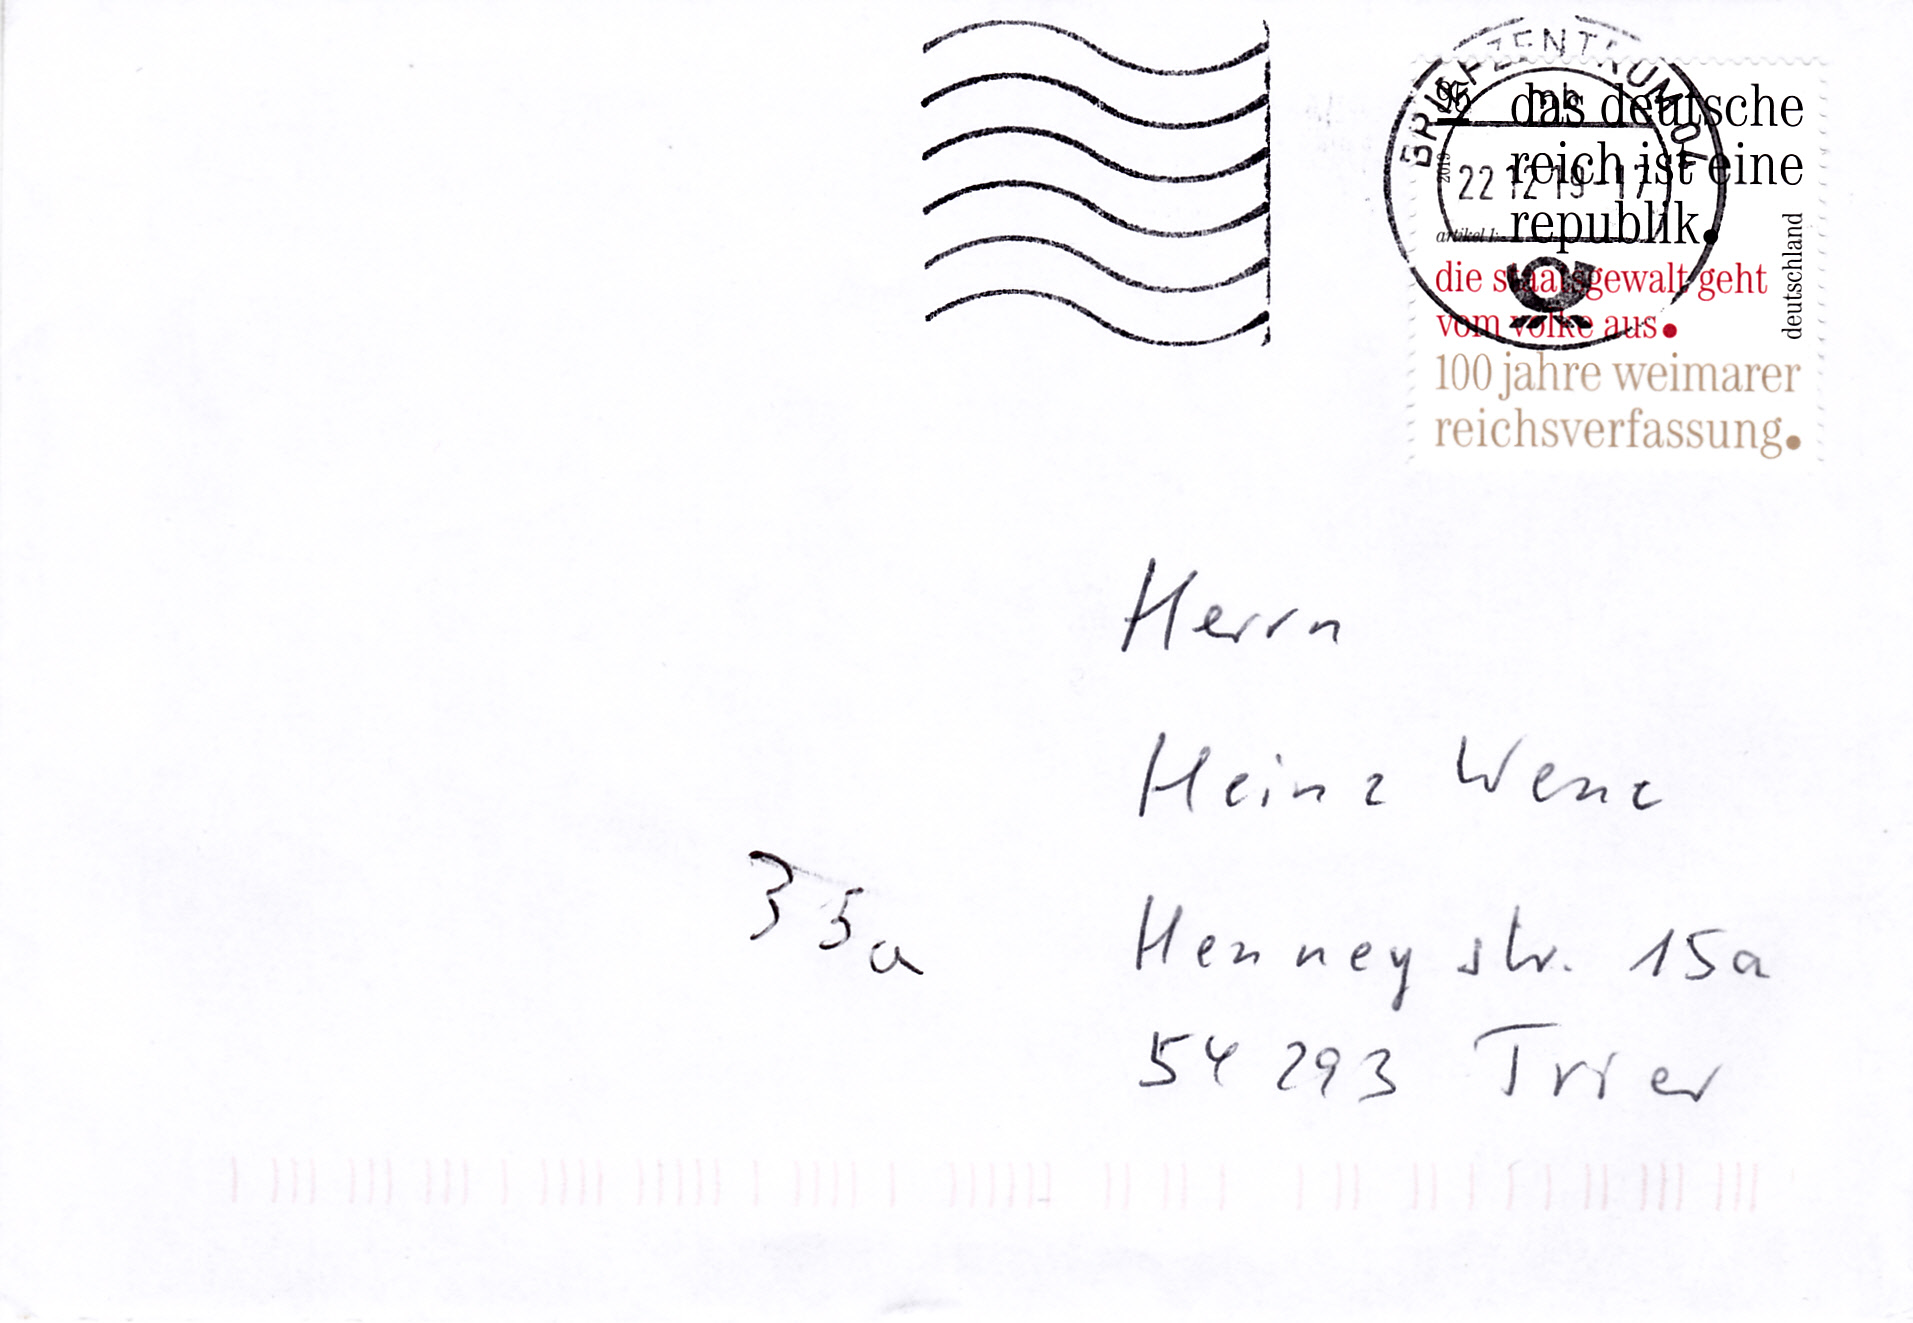 BRIEFZENTRUM
mb
22.12.19-17
95
2019
das deutsche
reich ist eine
artikel 1: republik.
die staatsgewalt geht
vom volke aus.
deutschland
100 jahre weimarer
reichsverfassung.
Herrn
Heinz Wenz
35a
Henney str. 15a
54293 Trier